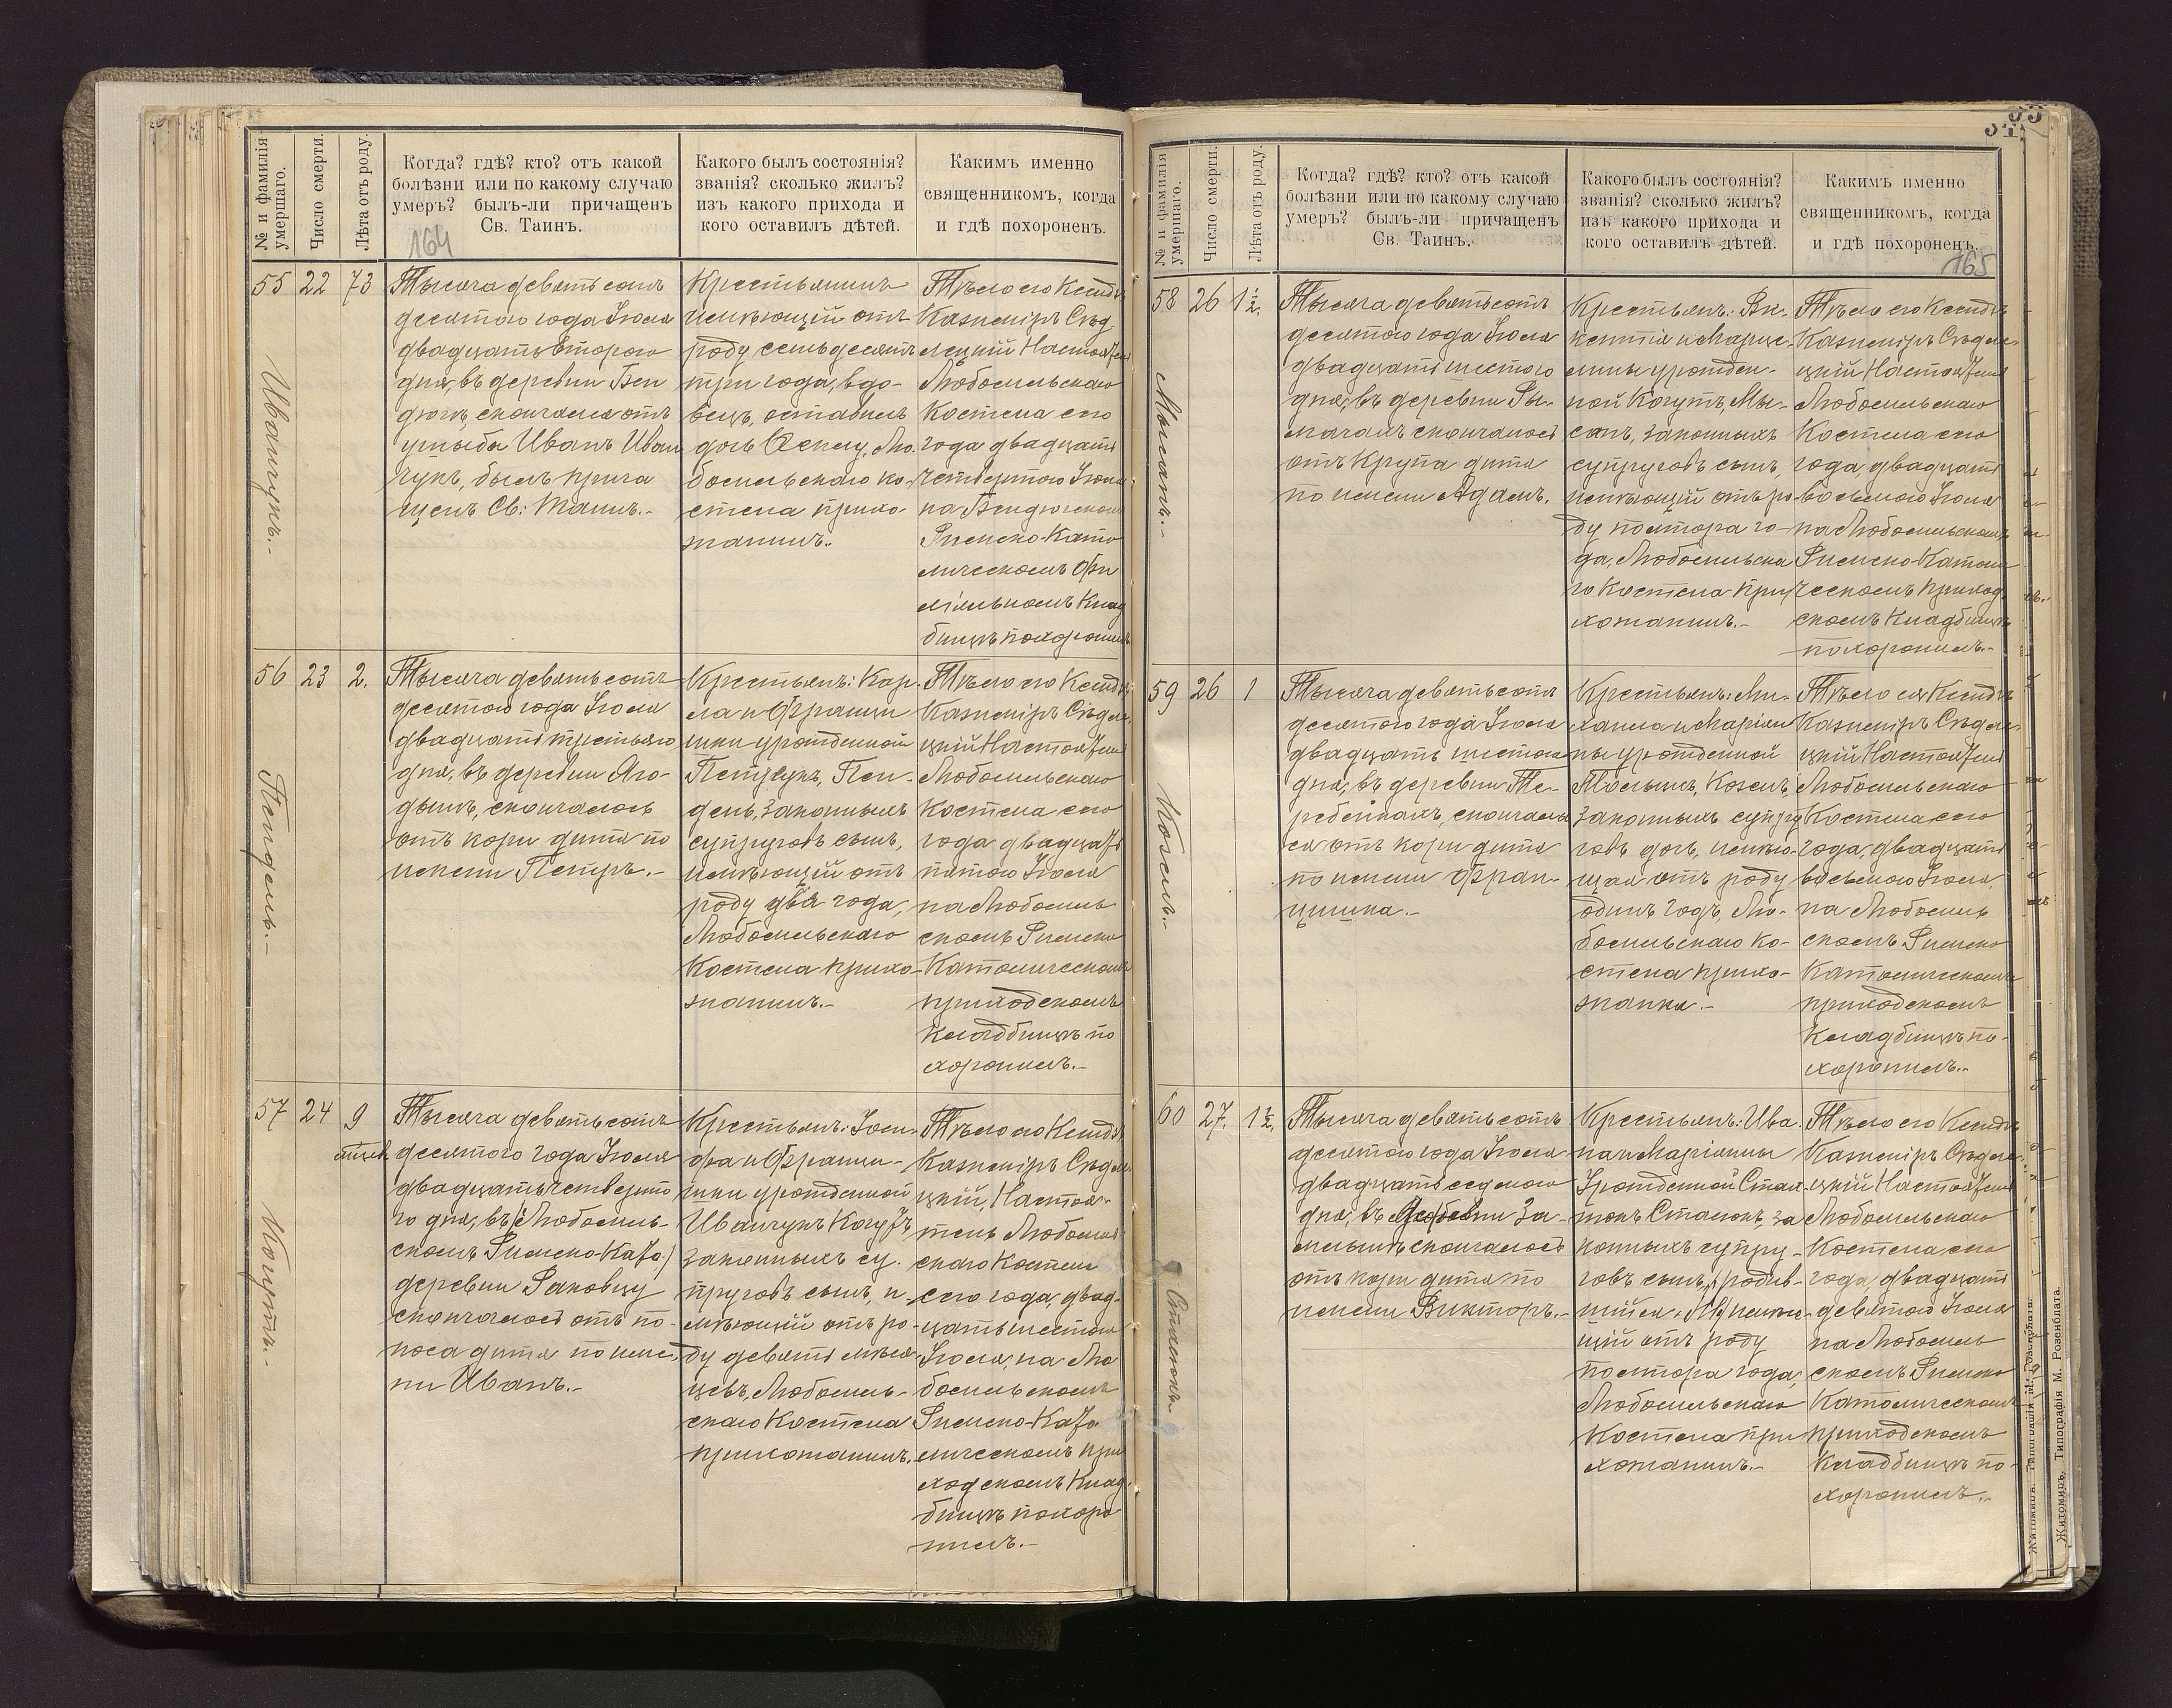 № и фамилія умершаго.
Число смерти.
Лѣта отъ роду.
Когда? гдѣ? кто? отъ какой
болѣзни или по какому случаю
умеръ? былъ-ли причащенъ
Св. Таинъ.
164
Какого былъ состоянія?
званія? сколько жилъ?
изъ какого прихода и
кого оставилъ дѣтей.
Какимъ именно
священникомъ, когда
и гдѣ похороненъ.
55 22 73
Иванчукъ.-
Тысяча девятьсотъ
десятого года Іюля
двадцать второго
дня, въ деревни Бен
дюгѣ, скончался отъ
ушыба Иванъ Иван
чукъ, былъ прича
щенъ Св: Таинъ.-
Крестьянинъ
имѣющій отъ
роду семьдесятъ
три года, вдо-
вецъ, оставилъ
дочь Олену, Лю-
бомльскаго ко-
стела прихо-
жанинъ.
Тѣло его Ксендзъ
Казиміръ Сѣд
лецкій Настоятель
Любомльскаго
Костела сего
года двадцать
четвертого Іюля
на Бендюгскомъ
Римско-Като
лическомъ Фи
ліяльномъ Клад
бищѣ похоронилъ
56 23 2.
Пендель.-
Тысяча девятьсотъ
десятого года Іюля
двадцать третьяго
дня, въ деревни Яго-
дынѣ, скончалось
отъ кори дитя по
имени Петръ.-
Крестьянъ: Кар-
ла и Францы
шки урожденной
Петрукъ, Пен-
дель, законныхъ
супруговъ сынъ,
имѣющій отъ
роду два года,
Любомльскаго
Костела прихо-
жанинъ.-
Тѣло его Ксендзъ
Казиміръ Сѣдле
цкій Настоятель
Любомльскаго
Костела сего
года двадцать
пятого Іюля
на Любомль
скомъ Римско
Католическомъ
приходскомъ
Кладбищѣ по
хоронилъ.-
57 24 9
мѣсяц.
Когутъ.-
Тысяча девятьсотъ
десятого года Іюля
двадцать четверто
го дня, въ (Любомль-
скомъ Римско-Като)
деревни Раковцу
скончалось отъ по-
носа дитя по име
ни Иванъ.-
Крестьянъ: Іоси-
фа и Францы-
шки урожденной
Иванчукъ Когутъ
законныхъ су-
пруговъ сынъ, и-
мѣющій отъ ро-
ду девять мѣся
цевъ, Любомль-
скаго Костела
прихожанинъ.
Тѣло его Ксендзъ
Казиміръ Сѣдле
цкій, Настоя-
тель Любомль
скаго Костела
сего года, двад-
цать шестого
Іюля, на Лю
бомльскомъ
Римско-Като
лическомъ при
ходскомъ Клад
бищѣ похоро
нилъ.-
№ и фамилія умершаго.
Число смерти.
Лѣта отъ роду.
Когда? гдѣ? кто? отъ какой
болѣзни или по какому случаю
умеръ? былъ-ли причащенъ
Св. Таинъ.
Какого былъ состоянія?
званія? сколько жилъ?
изъ какого прихода и
кого оставилъ дѣтей.
Какимъ именно
священникомъ, когда
и гдѣ похороненъ.
165
58 26 1½.
Мысакъ.-
Тысяча девятьсотъ
десятого года Іюля
двадцать шестого
дня, въ деревни Ры-
мачахъ скончалось
отъ Крупа дитя
по имени Адамъ.
Крестьянъ: Ви-
кентія и Марце-
лины урожден-
ной Когутъ, Мы-
сакъ, законныхъ
супруговъ сынъ,
имѣющій отъ ро-
ду полтора го-
да, Любомльска
го Костела при
хожанинъ.-
Тѣло его Ксендзъ
Казиміръ Сѣдле-
цкій Настоятель
Любомльскаго
Костела сего
года, двадцать
восьмого Іюля
на Любомльскомъ
Римско-Католи
ческомъ приход
скомъ Кладбищѣ
похоронилъ.-
59 26 1
Козелъ.-
Тысяча девятьсотъ
десятого года Іюля
двадцать шестого
дня, въ деревни Те-
ребейкахъ, скончало
ся отъ кори дитя
по имени Фран-
цишка.-
Крестьянъ: Ми-
хаила и Маріян
ны урожденной
Козелъ,
законныхъ супру
говъ дочь, имѣю-
щая отъ роду
одинъ годъ, Лю-
бомльскаго Ко-
стела прихо-
жанка.-
Тѣло ея Ксендзъ
Казиміръ Сѣдле-
цкій Настоятель
Любомльскаго
Костела сего
года, двадцать
восьмого Іюля,
на Любомль
скомъ Римско
Католическомъ
приходскомъ
Кладбищѣ по-
хоронилъ.-
60 27. 1½.
Сталюкъ.-
Тысяча девятьсотъ
десятого года Іюля
двадцать седмого
дня, въ деревни За-
млынѣ скончалось
отъ кори дитя по
имени Викторъ.-
Крестьянъ: Ива-
на и Маріянны
Урожденной
Сталюкъ, за
конныхъ супру-
говъ сынъ, родив-
шійся имѣю-
щій отъ роду
полтора года,
Любомльскаго
Костела при
хожанинъ.-
Тѣло его Ксендзъ
Казиміръ Сѣдле-
цкій Настоятель
Любомльскаго
Костела сего
года двадцать
девятого Іюля
на Любомль
скомъ Римско
Католическомъ
приходскомъ
Кладбищѣ по-
хоронилъ.-
Житомиръ. Типографія М. Розенблата.
Житомиръ. Типографія М. Розенблата.